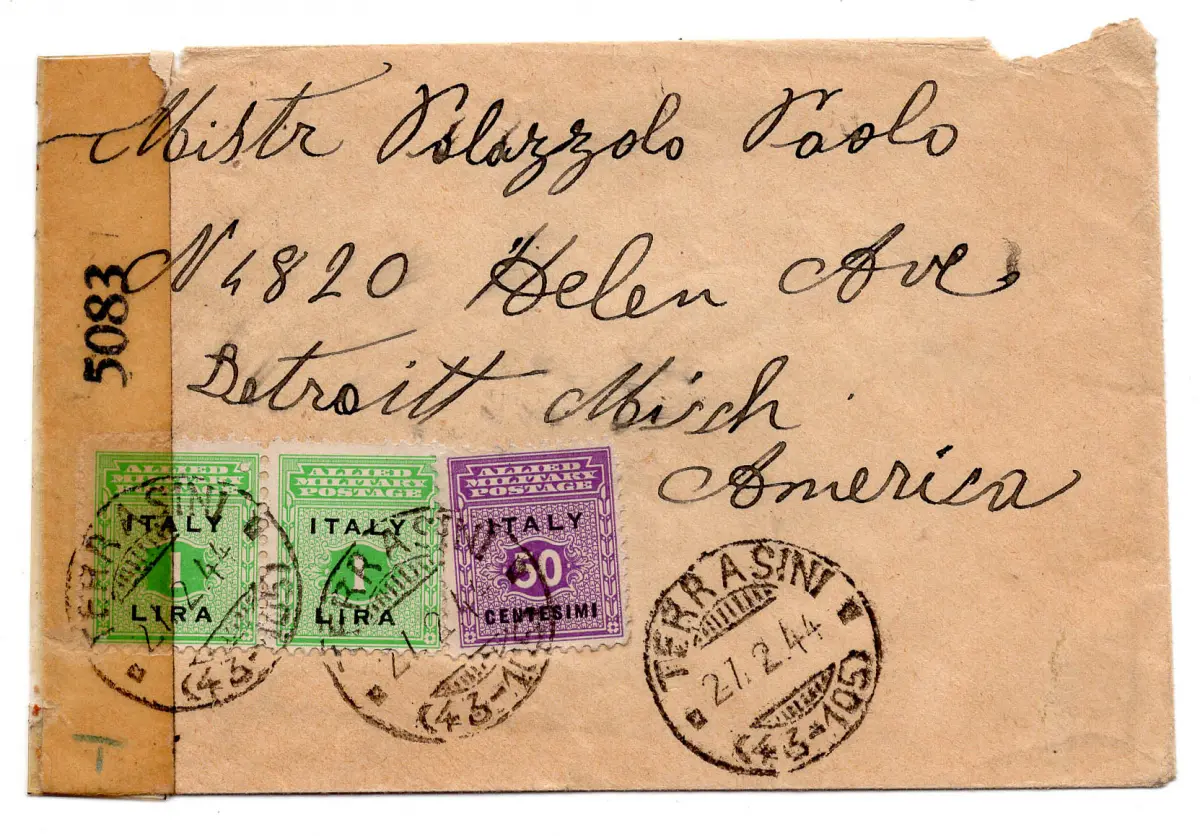 Mistr Palazzolo Paolo
N 4820 Helen Ave.
Detroitt Misch
America
5083
ALLIED
MILITARY
POSTAGE
ITALY
1
LIRA
ALLIED
MILITARY
POSTAGE
ITALY
1
LIRA
ALLIED
MILITARY
POSTAGE
ITALY
50
CENTESIMI
TERRASINI
(43-105)
TERRASINI
TERRASINI
27.2.44
(43-105)
T